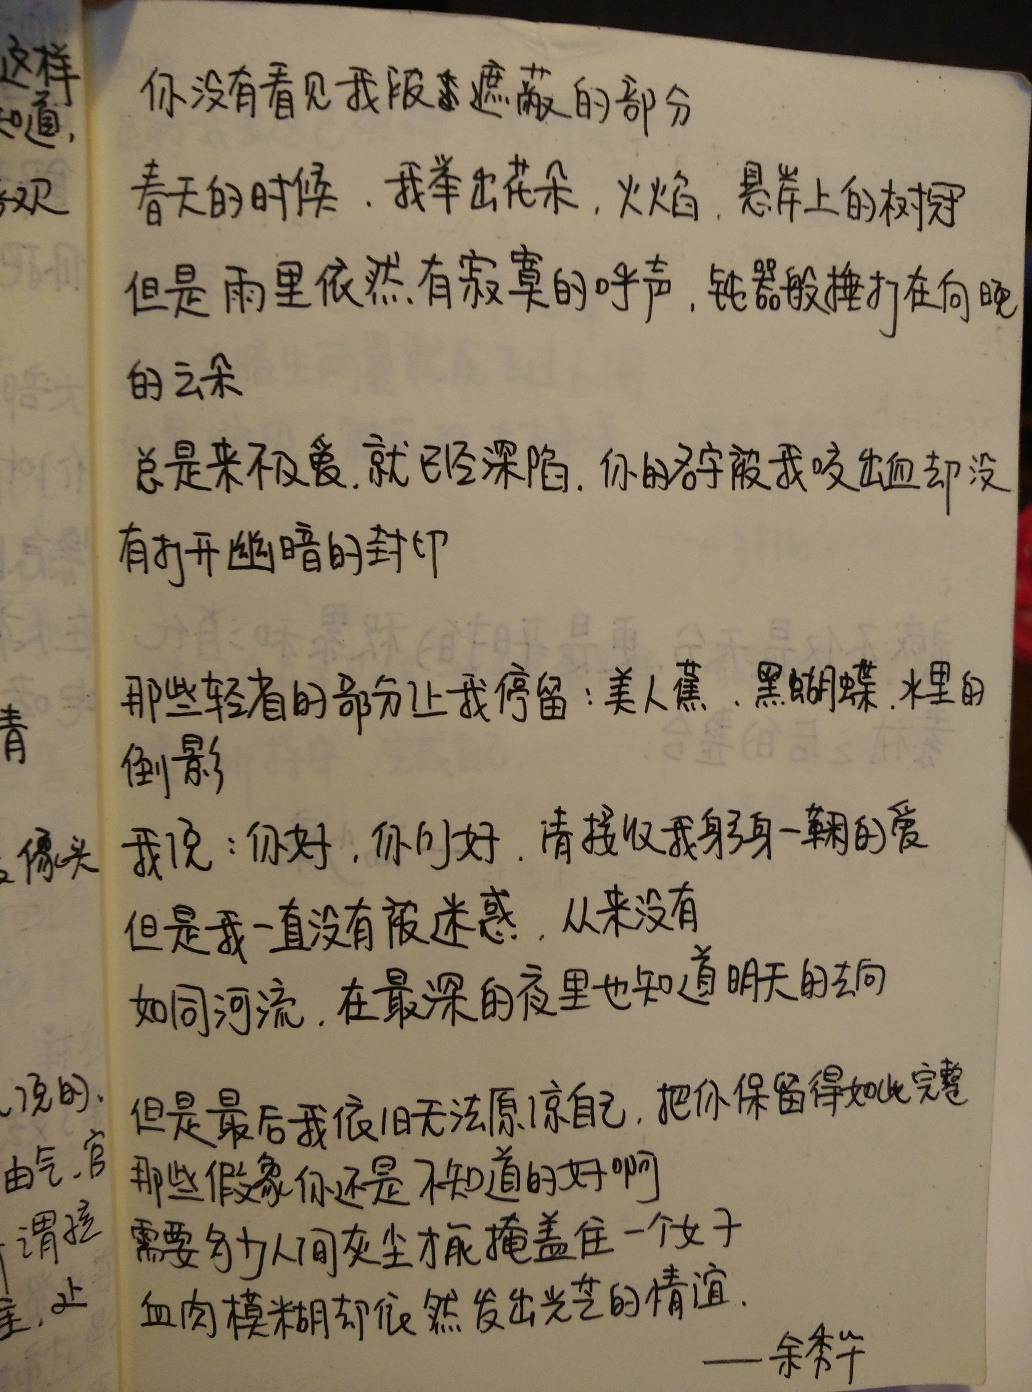 你没有看见我被遮蔽的部分
春天的时候，我举出花朵，火焰，悬岸上的树冠
但是雨里依然有寂寞的呼声，钝器般捶打在向晚
的云朵
总是来不及爱，就已经深陷，你的名字被我咬出血却没
有打开幽暗的封印
那些轻省的部分让我停留：美人蕉、黑蝴蝶、水里的
倒影
我说：你好，你们好，请接收我躬身一鞠的爱
但是我一直没有被迷惑，从来没有
如同河流，在最深的夜里也知道明天的去向
但是最后我依旧无法原谅自己，把你保留得如此完整
那些假象你还是不知道的好啊
需要多少人间灰尘才能掩盖住一个女子
血肉模糊却依然发出光芒的情谊.
——余秀华
这样
知道，
欢
青
像头
说的、
由气、官
谓弦
止